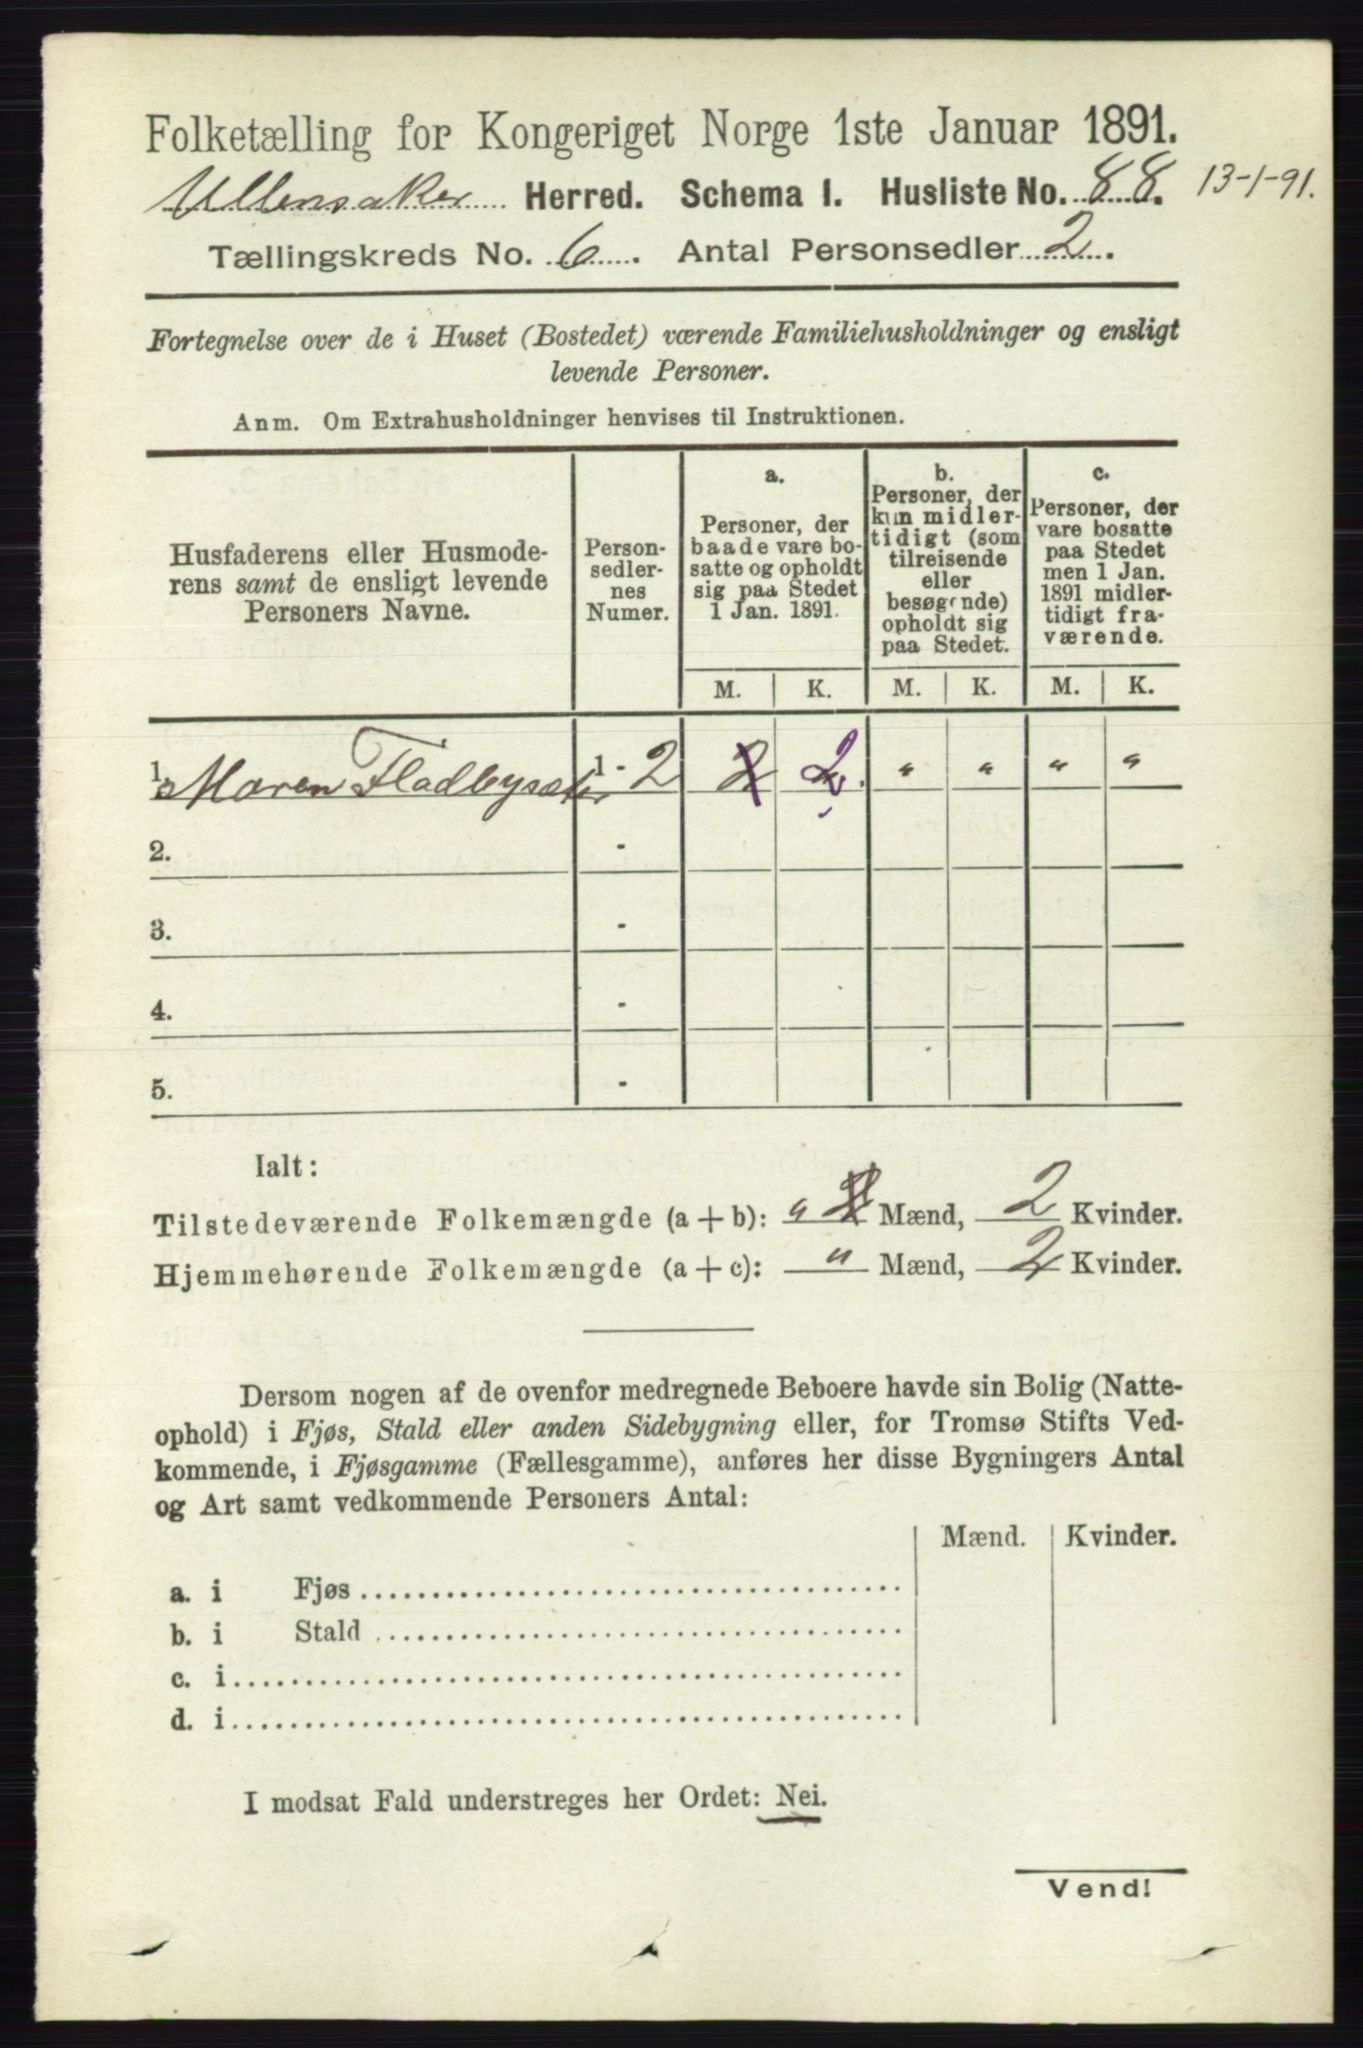 Folketælling for Kongeriget Norge 1ste Januar 1891.
Ullensaker Herred. Schema I. Husliste No. 88. 13-1-91.
Tællingskreds No. 6. Antal Personsedler 2.
Fortegnelse over de i Huset (Bostedet) værende Familiehusholdninger og ensligt
levende Personer.
Anm. Om Extrahusholdninger henvises til Instruktionen.
Husfaderens eller Husmode-
rens samt de ensligt levende
Personers Navne.
Person-
sedler-
nes
Numer.
a.
Personer, der
baade vare bo-
satte og opholdt
sig paa Stedet
1 Jan. 1891.
b.
Personer, der
kun midler-
tidigt (som
tilreisende
eller
besøgende)
opholdt sig
paa Stedet.
c.
Personer, der
vare bosatte
paa Stedet
men 1 Jan.
1891 midler-
tidigt fra-
værende.
M. K. M. K. M. K.
1. Maren Fladbysæter 1 - 2 2 2 " " " "
2. -
3. -
4. -
5. -
Ialt:
Tilstedeværende Folkemængde (a + b): " 2 Mænd, 2 Kvinder.
Hjemmehørende Folkemængde (a + c): " Mænd, 2 Kvinder.
Dersom nogen af de ovenfor medregnede Beboere havde sin Bolig (Natte-
ophold) i Fjøs, Stald eller anden Sidebygning eller, for Tromsø Stifts Ved-
kommende, i Fjøsgamme (Fællesgamme), anføres her disse Bygningers Antal
og Art samt vedkommende Personers Antal:
Mænd. Kvinder.
a. i Fjøs
b. i Stald
c. i
d. i
I modsat Fald understreges her Ordet: Nei.
Vend!